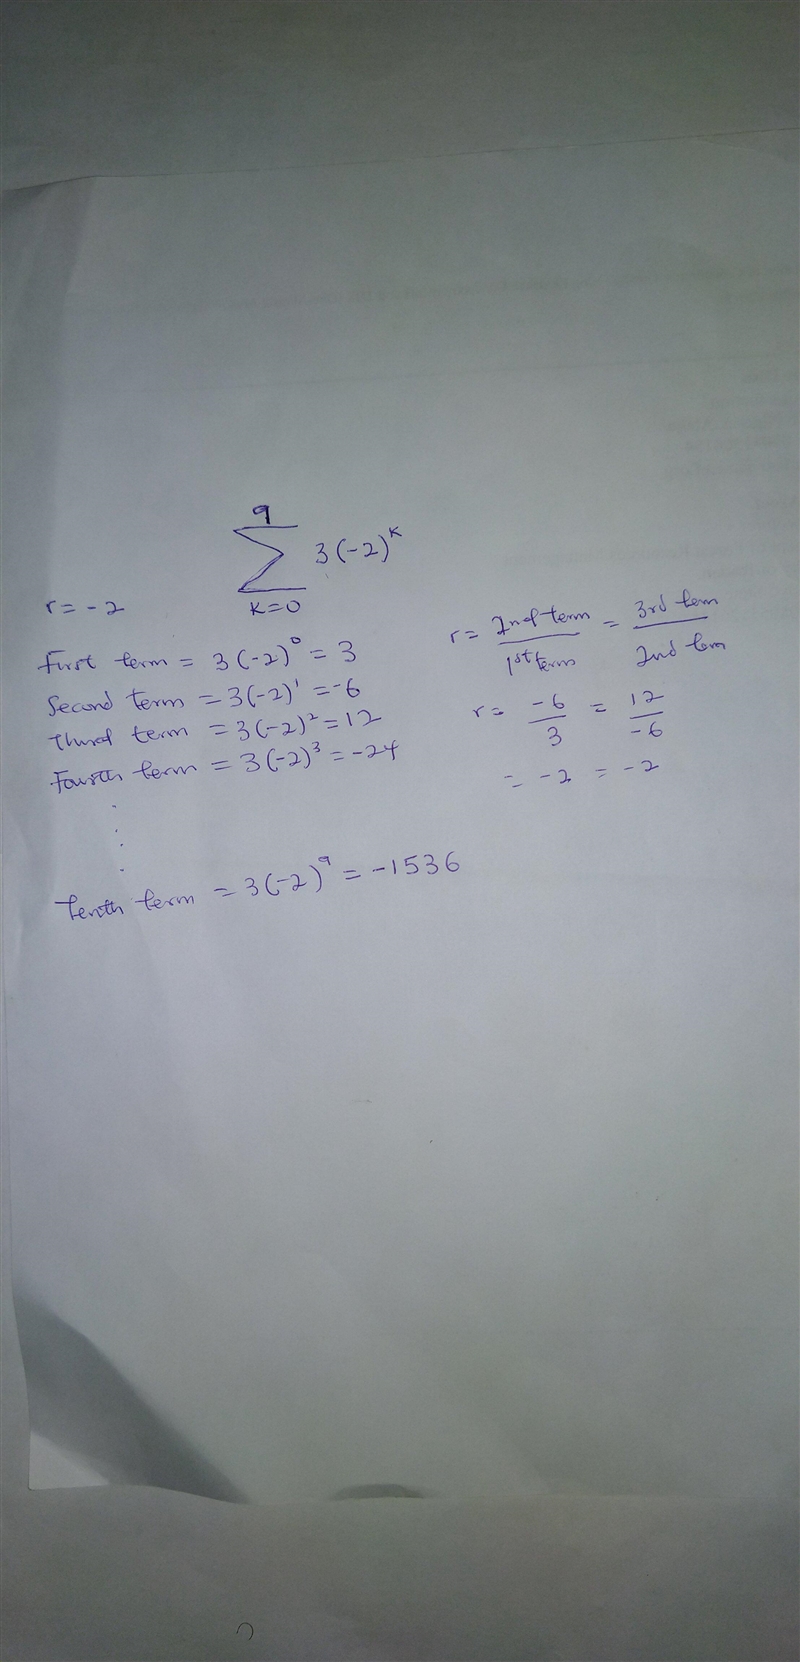 9
∑ 3(-2)^k
k=0
r = -2
First term = 3(-2)^0 = 3
Second term = 3(-2)^1 = -6
Third term = 3(-2)^2 = 12
Fourth term = 3(-2)^3 = -24
.
.
.
.
Tenth term = 3(-2)^9 = -1536
r = 2nd term / 1st term = 3rd term / 2nd term
r = -6 / 3 = 12 / -6
= -2 = -2